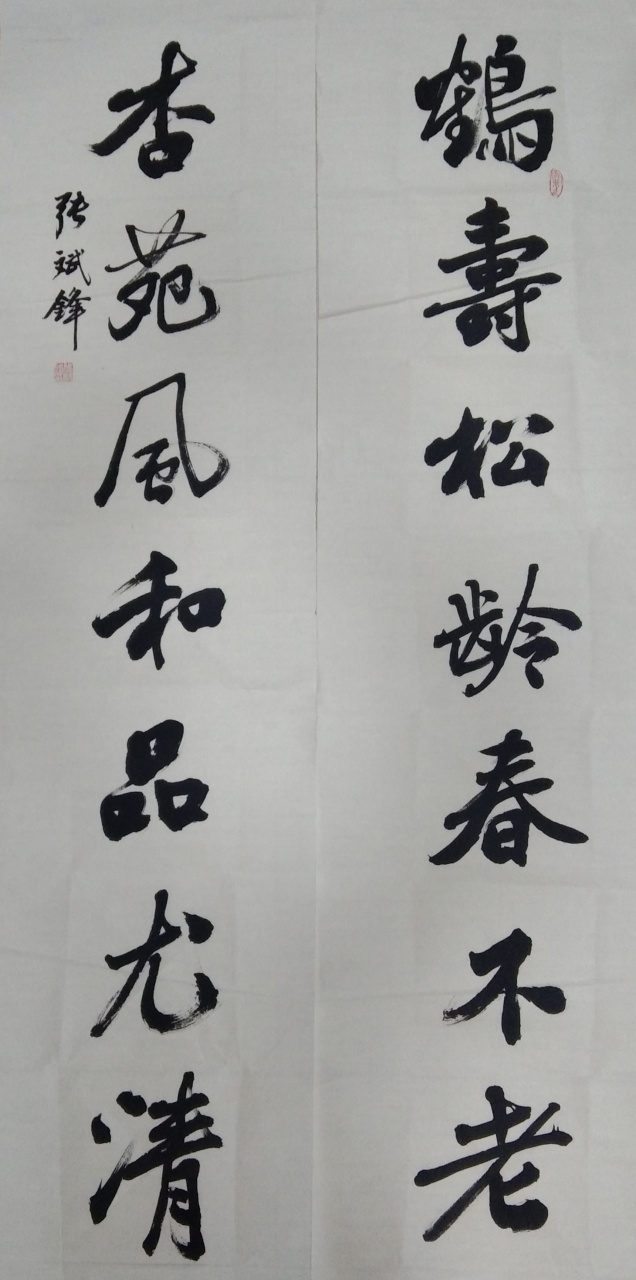 鶴壽松齡春不老
杏苑風和品尤清
張斌鋒